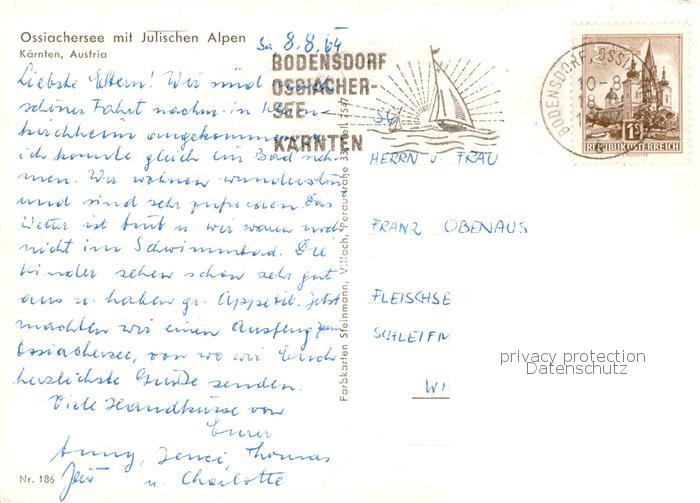 Ossiachersee mit Julischen Alpen
Kärnten, Austria
Sa, 8.8.64
Liebste Eltern! Wir sind nach
schöner Fahrt nachm. in
kirchheim angekommen
ich konnte gleich ein Bad neh-
men. Wir wohnen wunderschön
und sind sehr zufrieden. Das
Wetter ist trüb u. wir waren noch
nicht im Schwimmbad. Die
Kinder sehen schon sehr gut
aus u. haben gr. Appetit. Jetzt
machten wir einen Ausflug zum
Ossiachersee, von wo wir Euch
herzlichste Grüße senden.
Viele Handküsse von
Eurer
Anny, Thomas
u. Charlotte
Nr. 186
Farbkarten Steinmann, Villach, Peraustraße 33,
BODENSDORF
OSSIACHER-
SEE
KÄRNTEN
BODENSDORF, OSSI
10-8
18
REPUBLIK ÖSTERREICH
S.g.
HERRN u. FRAU
FRANZ OBENAUS
FLEISCHSE
SCHLEIFM
WI
privacy protection
Datenschutz